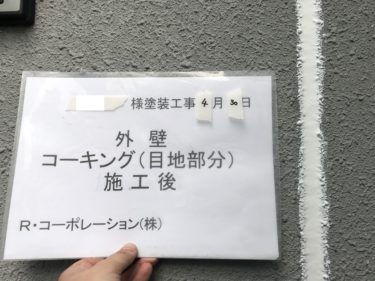 様塗装工事 4 月 30 日
外壁
コーキング(目地部分)
施工後
R・コーポレーション(株)